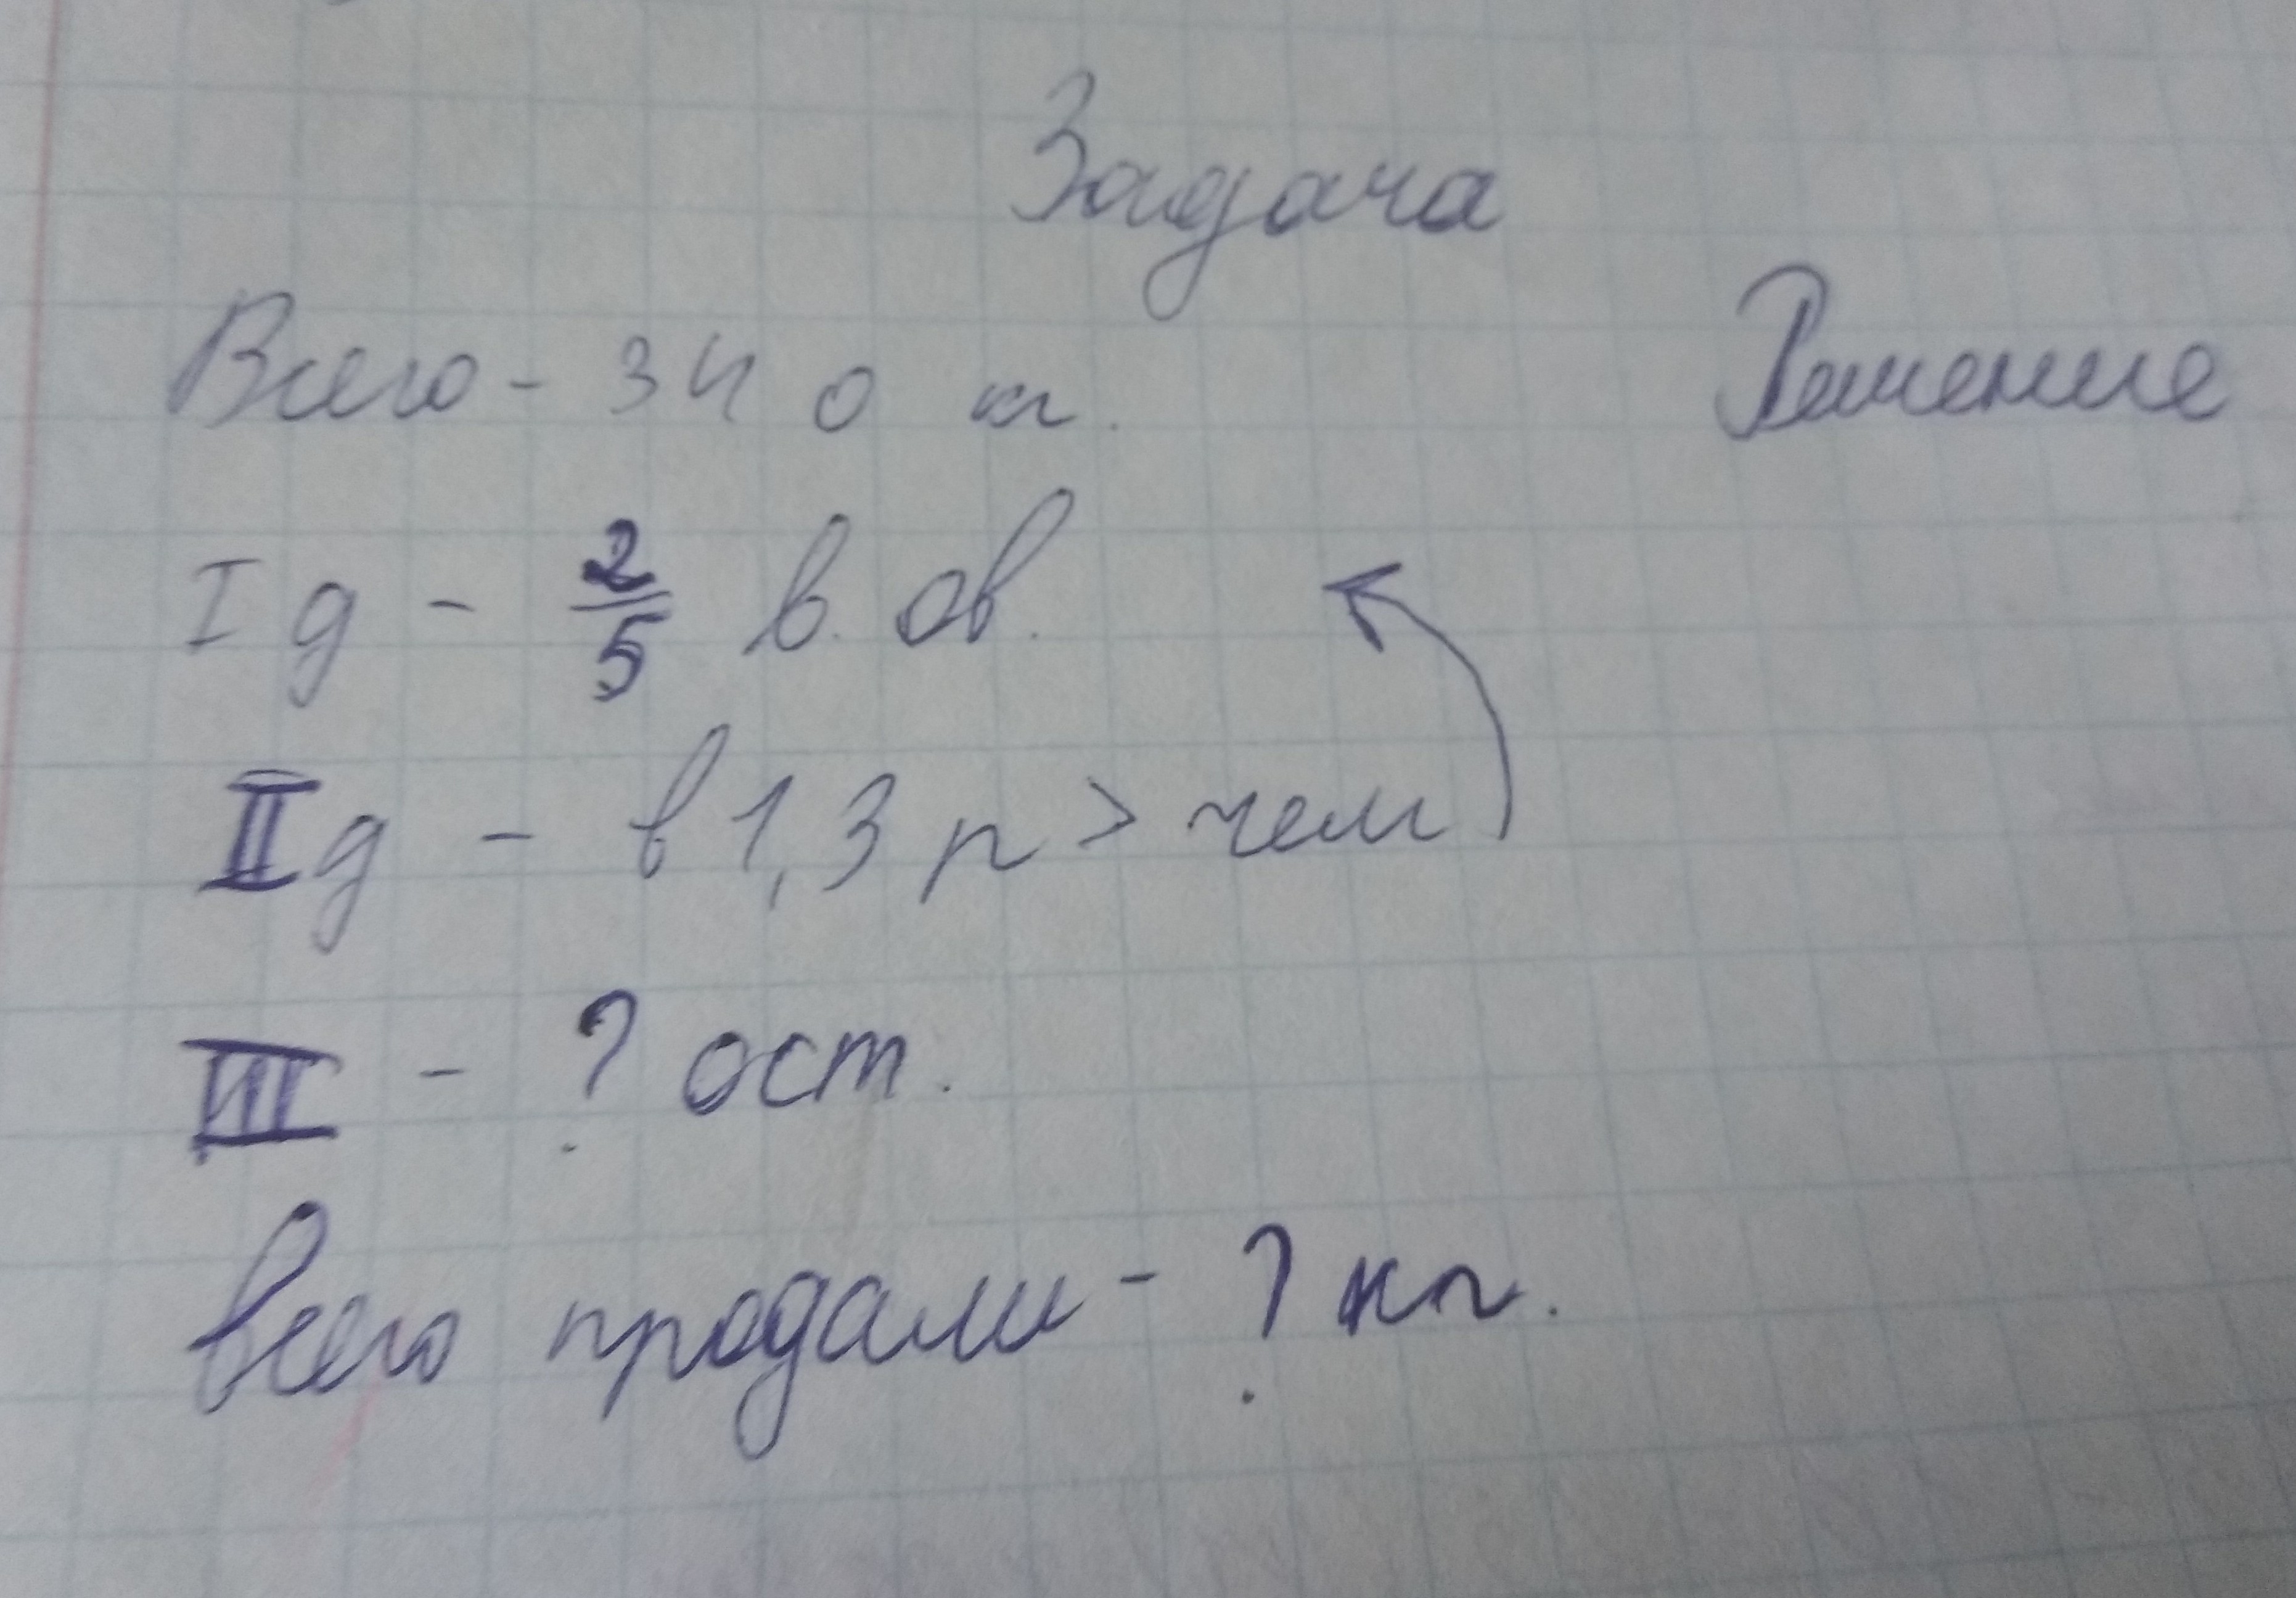 Задача
Всего - 340 кг. Решение
I д - 2/5 в. ов.
II д - в 1,3 р > чем
III - ? ост.
всего продали - ? кг.